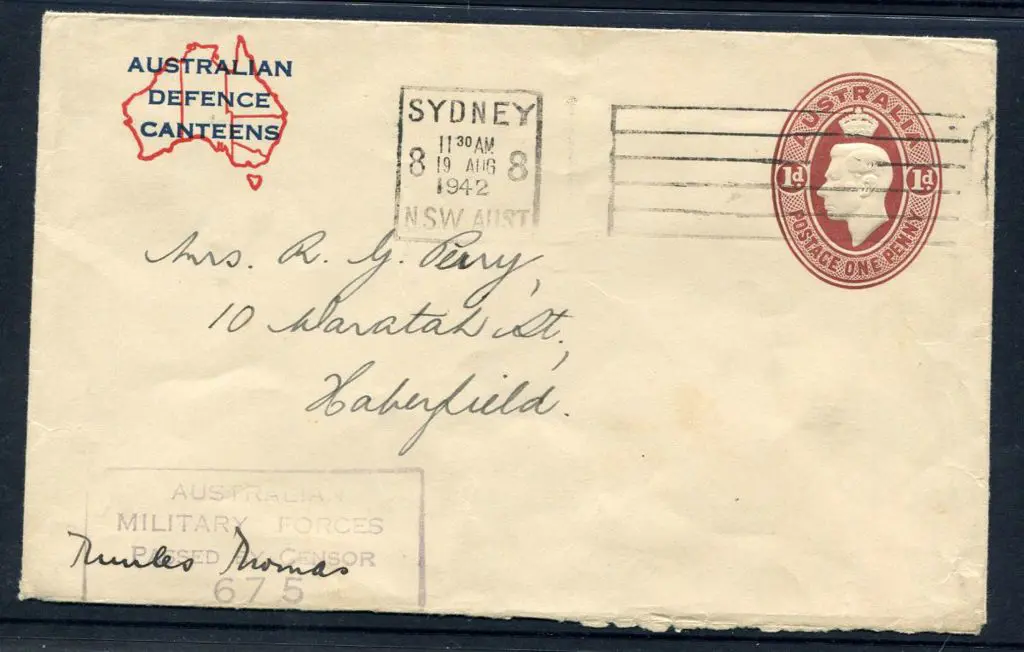 AUSTRALIAN
DEFENCE
CANTEENS
SYDNEY
11 30 AM
8 19 AUG 8
1942
N.S.W. AUST
AUSTRALIA
1d 1d
POSTAGE ONE PENNY
Mrs. R. G. Perry,
10 Waratah St.,
Haberfield.
AUSTRALIAN
MILITARY FORCES
PASSED BY CENSOR
675
Thomas